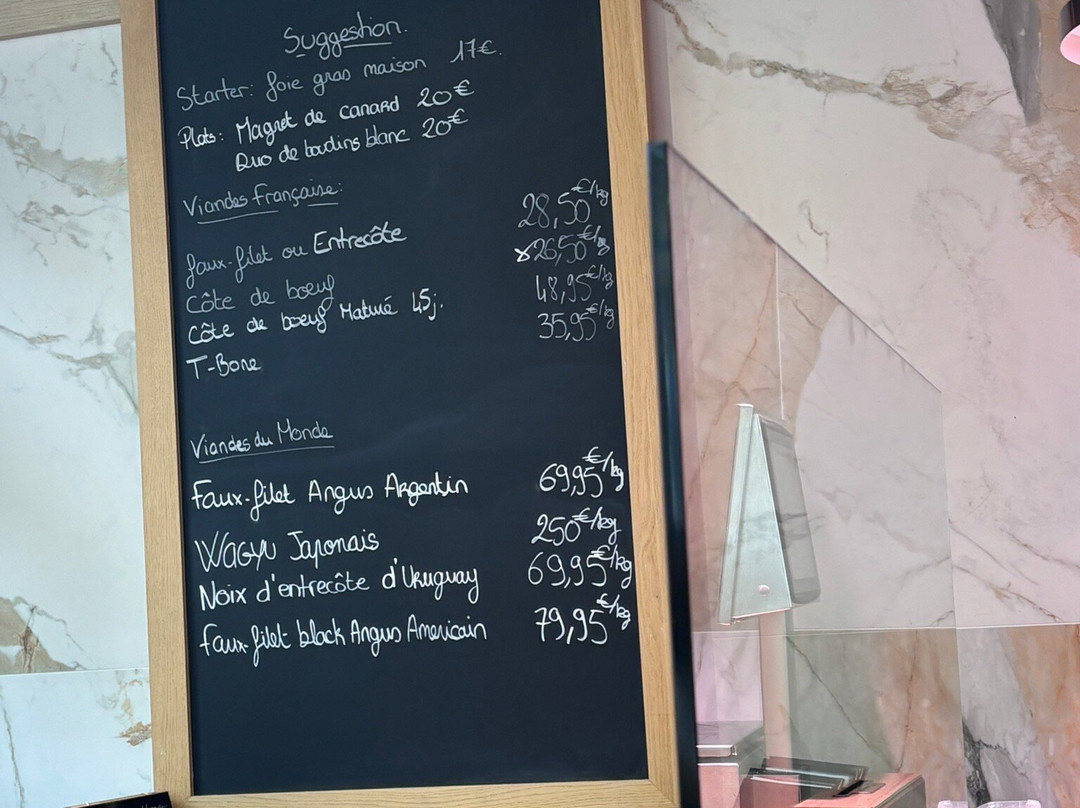 Suggestion.
Starter: foie gras maison 17€.
Plats: Magret de canard 20€
Duo de boudins blanc 20€
Viandes Française:
faux-filet ou Entrecôte 28,50€/kg
Côte de boeuf 26,50€/kg
Côte de boeuf Maturé 45j. 48,95€/kg
T-Bone 35,95€/kg
Viandes du Monde
Faux-filet Angus Argentin 69,95€/kg
Wagyu Japonais 250€/kg
Noix d'entrecôte d'Uruguay 69,95€/kg
faux-filet black Angus Americain 79,95€/kg